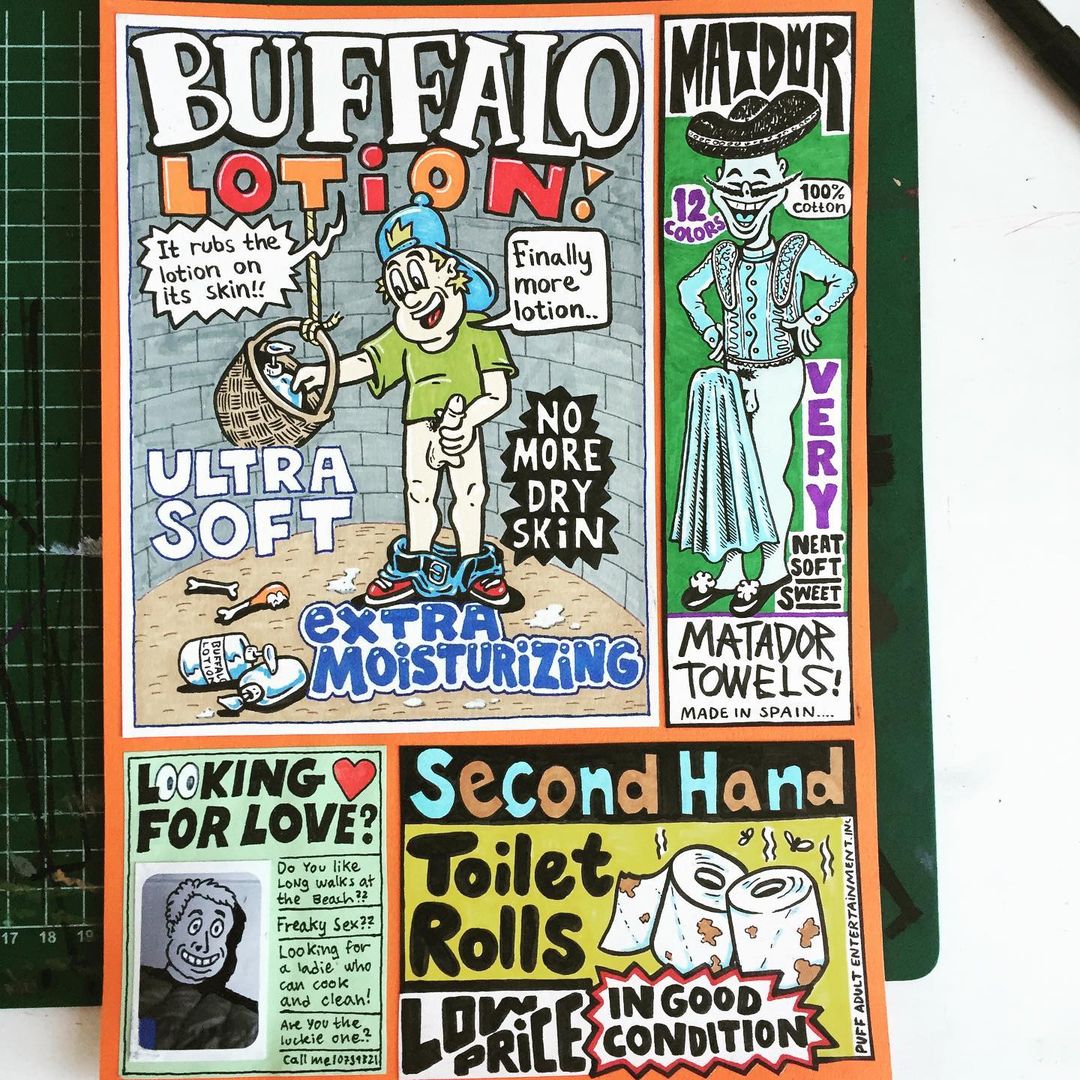 BUFFALO
LOTION!
It rubs the
lotion on
its skin!!
Finally
more
lotion..
NO
MORE
DRY
SKIN
ULTRA
SOFT
EXTRA
MOISTURIZING
BUFFALO
LOTION
MATDOR
12
COLORS
100%
cotton
VERY
NEAT
SOFT
SWEET
MATADOR
TOWELS!
MADE IN SPAIN....
LOOKING
FOR LOVE?
Do You like
Long walks at
the Beach??
Freaky Sex??
Looking for
a ladie who
can cook
and clean!
Are you the
luckie one.?
Second Hand
Toilet
Rolls
LOW
PRICE
IN GOOD
CONDITION
PUFF ADULT ENTERTAINMENT.INC
17 18 19